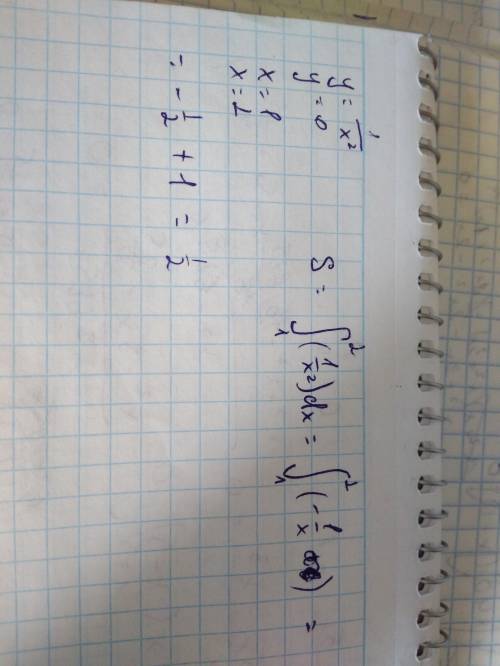 y = 1/x²
y = 0
x = 1
x = 2
S = ∫₁² (1/x²)dx = ∫₁² (-1/x) =
= - 1/2 + 1 = 1/2